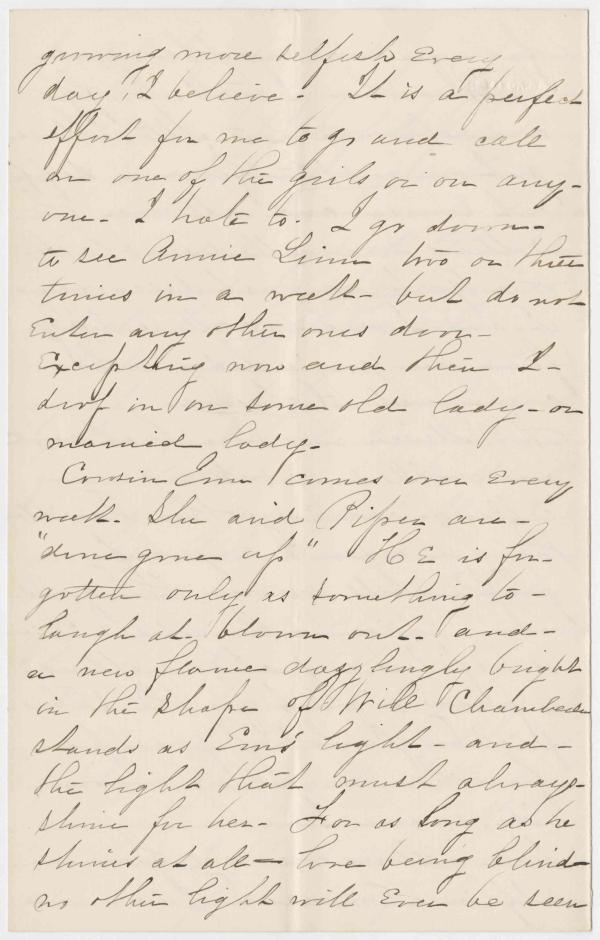 growing more selfish every
day, I believe. It is a perfect
effort for me to go and call
on one of the girls or on any-
one. I hate to. I go down-
to see Annie Linn two or three
times in a week- but do not
Enter any other ones door-
Excepting now and then I-
drop in on some old lady- or
married lady-
Cousin Em comes over Every
week. She and Piper are-
"done gone up" HE is for-
gotten only as something to-
laugh at. blown out. and-
a new flame dazzlingly bright
in the shape of Will Chamber
stands as Ems' light- and-
the light that must always-
shine for her- For as long as he
shines at all- love being blind-
no other light will Ever be seen